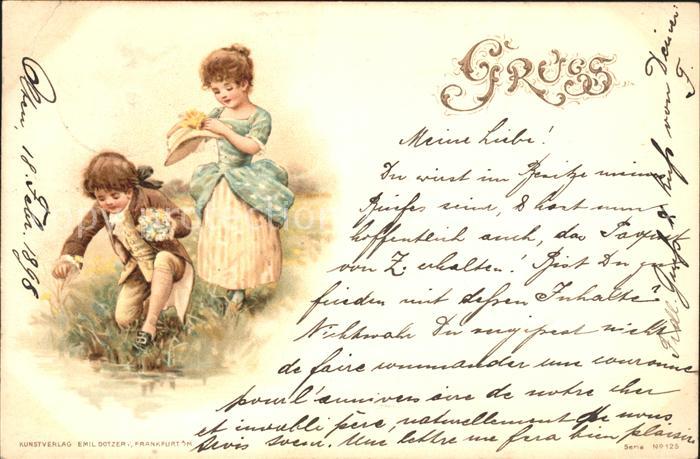 GRUSS
Rhein, 18. Febr. 1898
Meine Liebe!
Du wirst im Besitze meines
Briefes sein, & hast nun
hoffentlich auch, das Papier
von Z. erhalten! Bist Du zu
frieden mit dessen Inhalte?
Nichtwahr Du vergissest nicht
de faire commander une couronne
pour l'anniversaire de notre cher
et inoubli père, naturellement de nous
trois soeurs. Une lettre me fera bien plaisir
Gruss & Kuss von Deiner
KUNSTVERLAG EMIL DOTZERT, FRANKFURT A/M.
Serie No 125